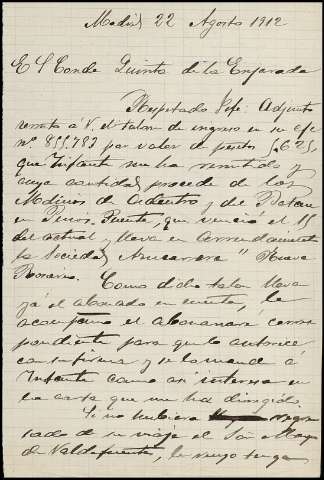 Madrid 22 Agosto 1912
E S Conde Quinta de la Enjarada
Reputado Jefe: Adjunto
remito á V. el talon de ingreso en su c/c
nº 855.783 por valor de pesetas 5.625
que Infante me ha remitido y
cuya cantidad procede de los
Molinos de Adentro y del Batan
en Puente, que venció el 15
del actual y lleva en arrendamiento
la Sociedad Azucarera " Nueva
Rosario. Como dicho talon lleva
yá el abonado en cuenta, le
acompaño el abonaré corres
pondiente para que lo autorice
con su firma y se lo mande á
Infante como asi interesa en
la carta que me ha dirigido.
Si no hubiera regre
sado de su viaje el Sr
de Valdefuentes, le ruego tenga